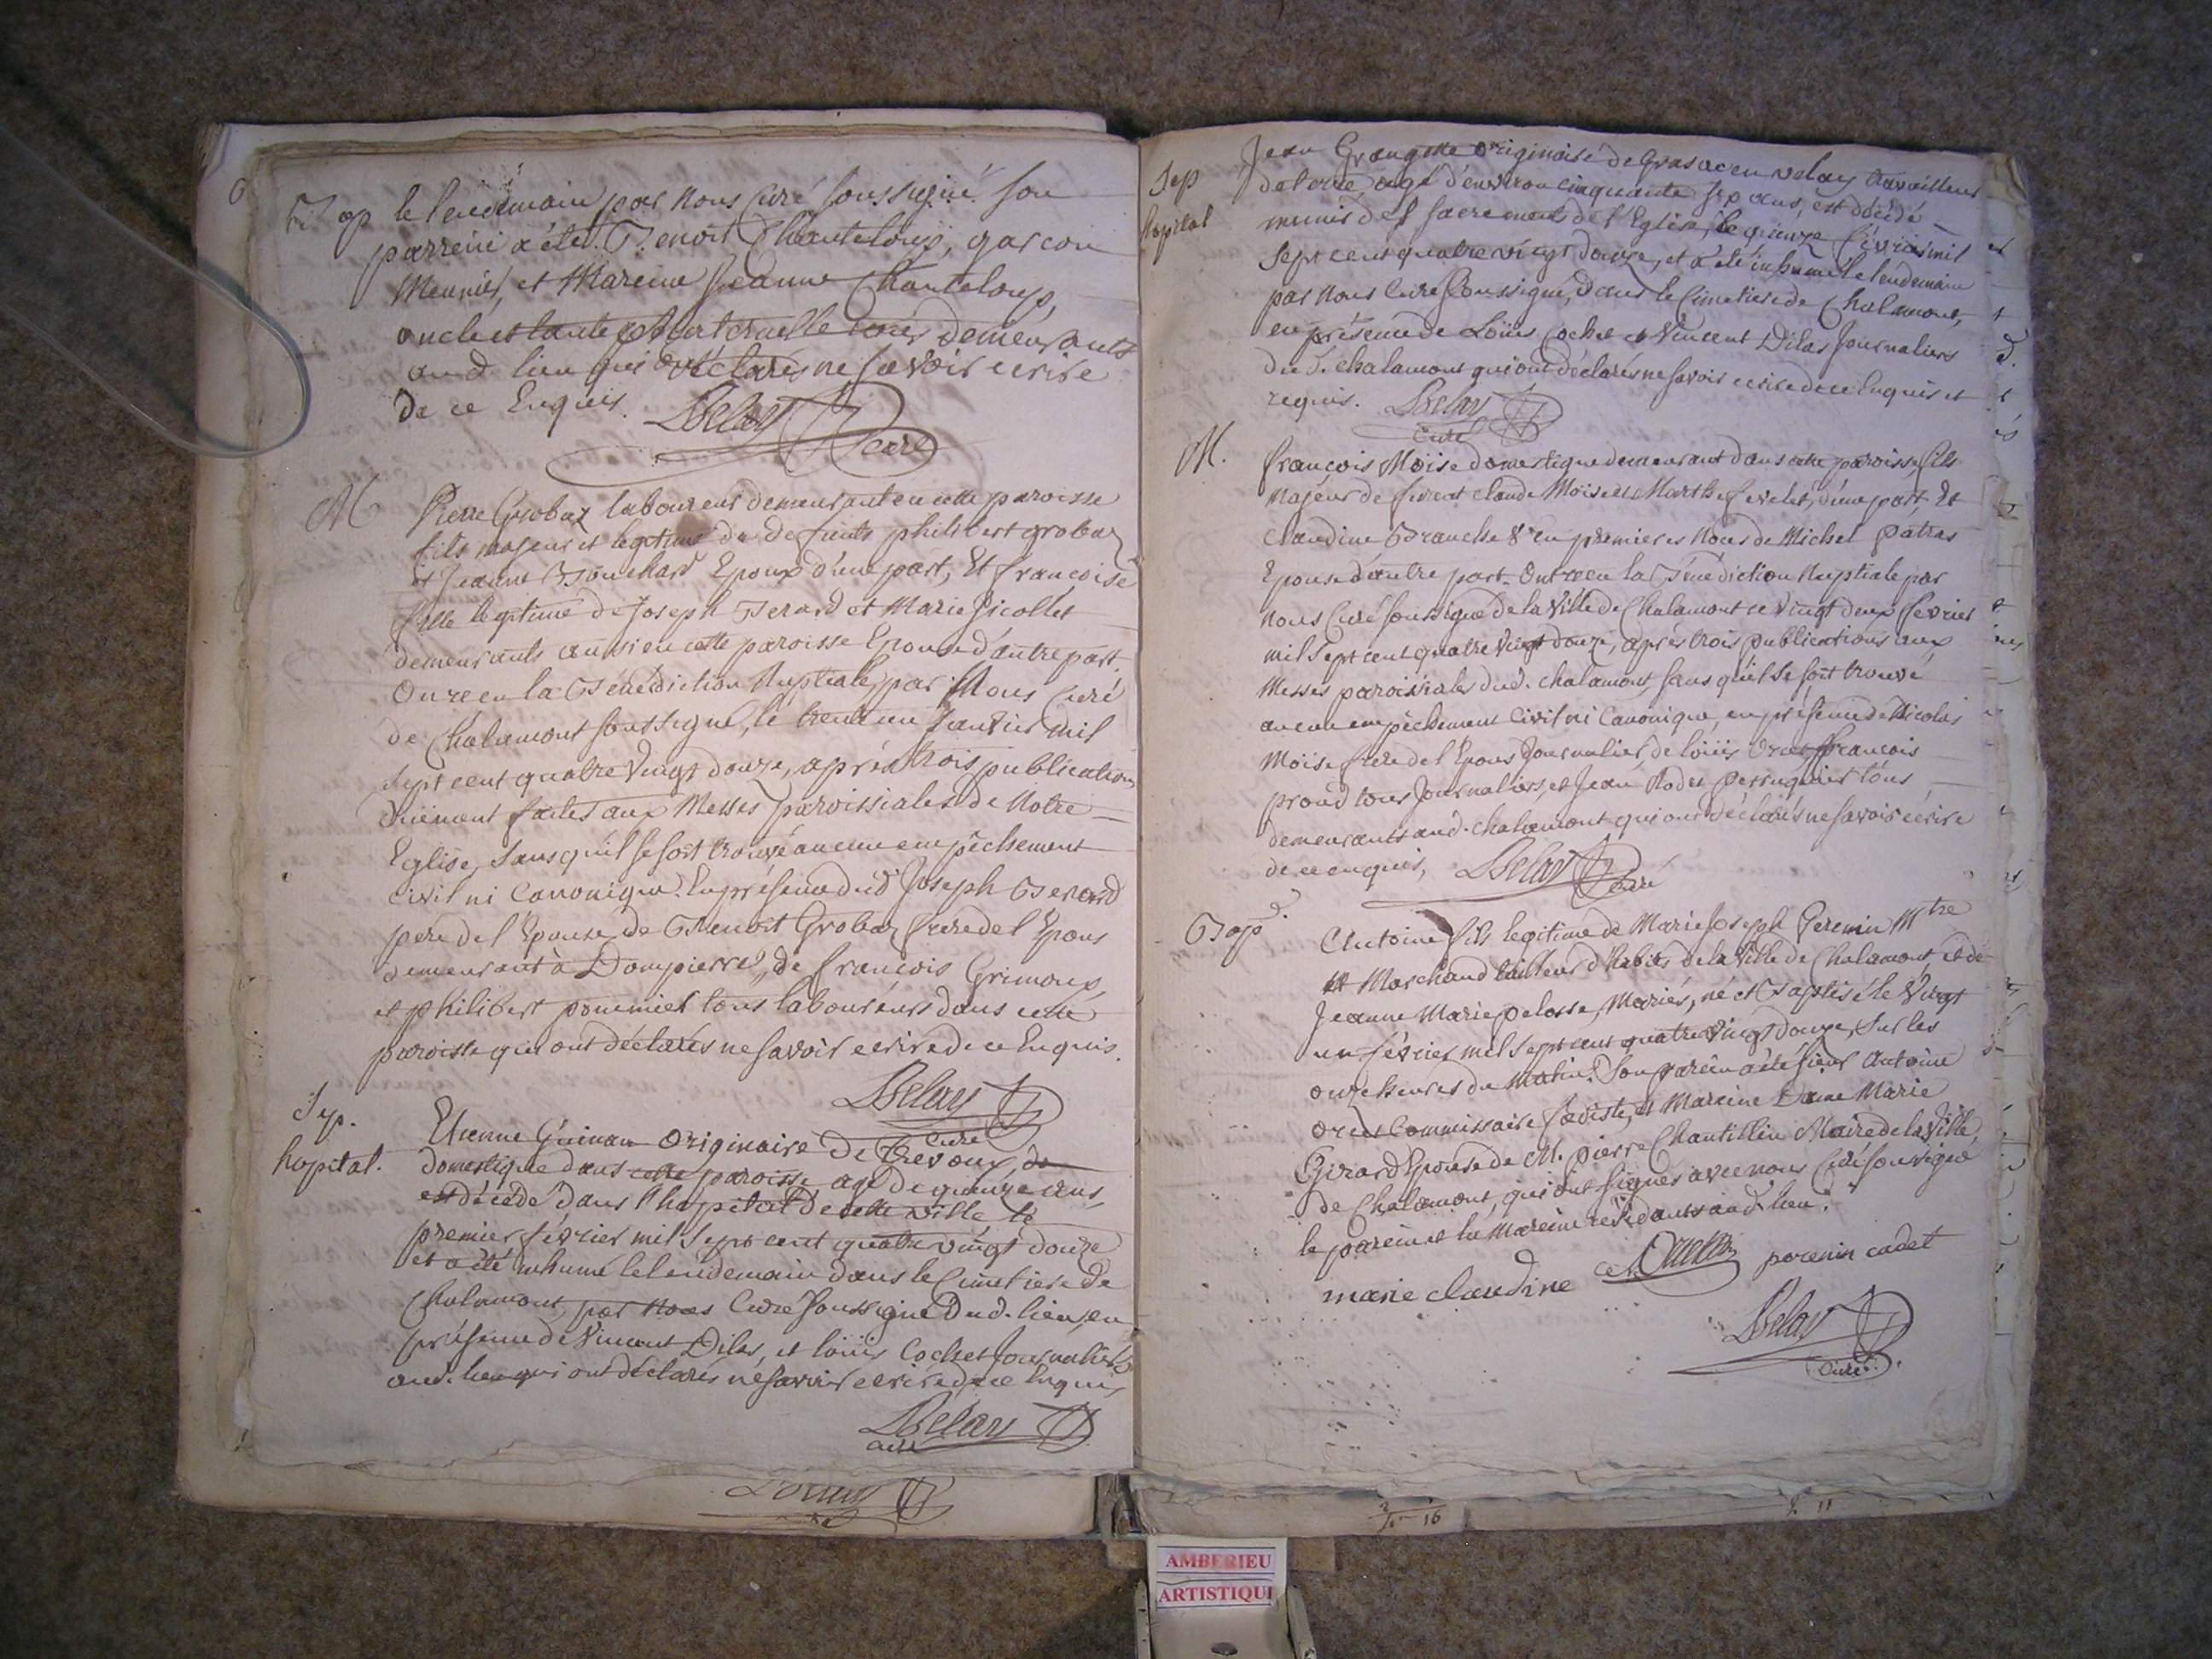 Bap le lendemain par nous Curé soussigné. Son
parrein a été Benoit Chanteloup, garcon
Meunier, et Mareine Jeanne Chanteloup,
oncle et tante tous demeurants
aud. lieu qui ont déclarés ne savoir ecrire
de ce Enquis. Belay curé
M
Pierre Grobaz laboureur demeurant en cette paroisse
fils majeur et legitime de defunts philibert grobaz
et Jeanne Bouchard Epoux d'une part, Et françoise
fille legitime de Joseph Berard et Marie Nicollet
demeurants aussi en cette paroisse Epouse d'autre part.
Ont recu la Bénédiction Nuptiale, par Nous Curé
de Chalamont soussigné, le trente un Janvier mil
sept cent quatre Vingt douze, après trois publications
düement faites aux Messes paroissiales de Notre
Eglise, sans qu'il se soit trouvé aucun empêchement
Civil ni Canonique. En présence dud. Joseph Berard
pere de l'Epouse, de Benoit Grobaz frere de l'Epoux
demeurant à Dompierre, de françois Grimoux,
et philibert pommier tous laboureurs dans cette
paroisse qui ont déclarés ne savoir ecrire de ce Enquis.
Belay Curé
Sep.
hopital.
Etienne Guinan Originaire de Trevoux, 
domestique dans cette paroisse agé de quinze ans,
est décédé dans l'hopital de cette ville, le
premier février mil sept cent quatre vingt douze
et a été inhumé le lendemain dans le Cimetiere de
Chalamont, par Nous Curé soussigné Dud. lieu, en
présence de Vincent Dilas, et loüis Cochet Journaliers
aud. lieu qui ont déclarés ne savoir ecrire de ce Enquis,
Belay
curé
Sep
hopital
Jean originaire de en velay travailleur
de terre agé d'environ cinquante sep ans, est décédé
munis des sacrements de l'Eglise, le quinze février mil
sept cent quatre vingt douze, et a été inhumé le lendemain
par nous Curé soussigné, dans le Cimetiere de Chalamont,
en présence de Loüis Cochet et Vincent Dilas Journaliers
du d. chalamont qui ont déclarés ne savoir ecrire de ce Enquis et
requis. Belay
Curé
M.
françois Moïse domestique demeurant dans cette paroisse, fils
Majeur de furent claude Moïse et Marthe d'une part, Et
Claudine Branche Ve en premieres Noces de Michel patras
Epouse d'autre part. Ont recu la Bénédiction Nuptiale par
nous Curé soussigné de la Ville de Chalamont ce Vingt deux fevrier
mil sept cent quatre Vingt douze, après trois publications aux
Messes paroissiales dud. chalamont, sans qu'il se soit trouvé
aucun empêchement Civil ni Canonique, en présence de Nicolas
Moïse frere de l'Epoux Journalier, de loüis françois
tous Journaliers, et Jean perruquier tous
demeurants aud. chalamont qui ont déclarés ne savoir écrire
de ce enquis, Belay Curé
Bap.
Antoine fils legitime de Marie Joseph Peremin Mtre
et Marchand tailleur d'habits de la Ville de Chalamont, et de
Jeanne Marie pelosse, Mariés, né et Baptisé le Vingt
un février mil sept cent quatre vingt douze, sur les
onze heures du Matin. Son parein a été sieur Antoine
Commissaire et Mareine Dame Marie
Girard Epouse de M. pierre Chantillin Maire de la Ville,
de Chalamont, qui ont signés avec nous Curé soussigné
le parein et la Mareine résidants aud. lieu.
marie claudine porenin cadet
Belay
Curé.
16
11
AMBERIEU
ARTISTIQU